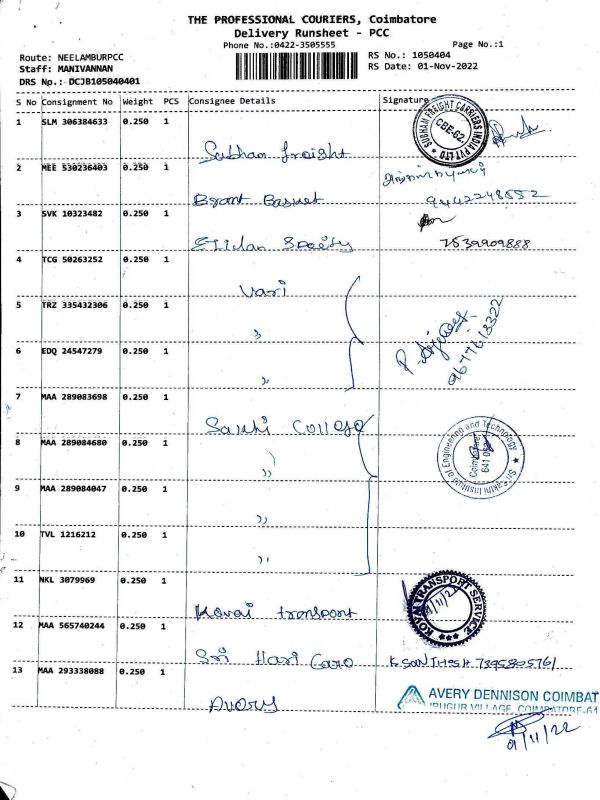 THE PROFESSIONAL COURIERS, Coimbatore
Delivery Runsheet - PCC
Phone No.:0422-3505555
Page No.:1
Route: NEELAMBURPCC
Staff: MANIVANNAN
DRS Np.: DCJB105040401
RS No.: 1050404
RS Date: 01-Nov-2022
S No Consignment No Weight PCS Consignee Details Signature
1 SLM 306384633 0.250 1
Subham freight
SUBHAM FREIGHT CARRIERS INDIA PVT LTD
CBE-62
2 MEE 530236403 0.250 1
9442248552
3 SVK 10323482 0.250 1
7539909888
4 TCG 50263252 0.250 1
Vari
5 TRZ 335432306 0.250 1
"
6 EDQ 24547279 0.250 1
"
9677618322
7 MAA 289083698 0.250 1
Sakthi College
8 MAA 289084680 0.250 1
"
Sri Sakthi Institute of Engineering and Technology
Coimbatore
641 062
9 MAA 289084047 0.250 1
"
10 TVL 1216212 0.250 1
"
11 NKL 3079969 0.250 1
Kovai transport
KOVAI TRANSPORT SERVICE
12 MAA 565740244 0.250 1
Sri Hari Caro K SANTHOSH 7395805761
13 MAA 293338088 0.250 1
Avery
AVERY DENNISON COIMBAT
IRUGUR VILLAGE, COIMBATORE-61
9/11/22